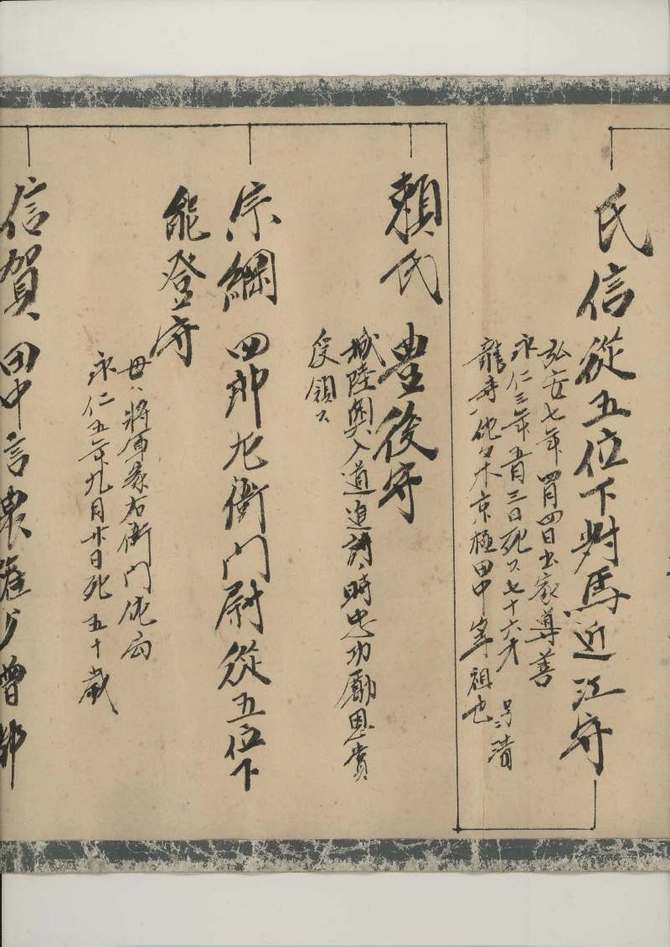 氏信從五位下對馬近江守
弘安七年四月四日出家尊善
永仁三年五月三日死ス七十六才 号清
龍寺 佐々木京極田中等祖也
賴氏 豊後守
城陸奥入道追討時忠功勵恩賞
受領ス
宗綱 四郎左衛門尉從五位下
能登守
母ハ將軍家右衛門佐局
永仁五年九月廿日死 五十歳
信賀 田中 權少僧都